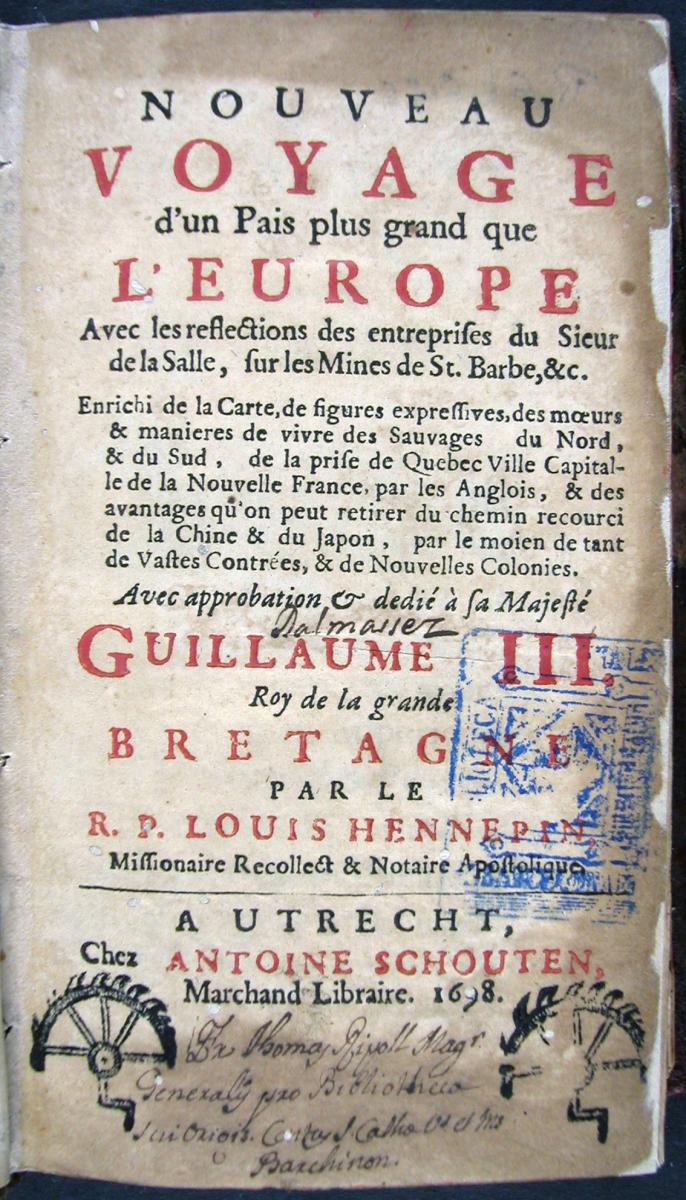 NOUVEAU
VOYAGE
d'un Pais plus grand que
L'EUROPE
Avec les reflections des entrepriſes du Sieur
de la Salle, ſur les Mines de St. Barbe, &c.
Enrichi de la Carte, de figures expreſſives, des mœurs
& manieres de vivre des Sauvages du Nord,
& du Sud, de la priſe de Quebec Ville Capital-
le de la Nouvelle France, par les Anglois, & des
avantages qu'on peut retirer du chemin recourci
de la Chine & du Japon, par le moien de tant
de Vaſtes Contrées, & de Nouvelles Colonies.
Avec approbation & dedié à ſa Majeſté
Dalmasez
GUILLAUME III.
Roy de la grande
BRETAGNE
PAR LE
R. P. LOUIS HENNEPIN,
Miſſionaire Recollect & Notaire Apoſtolique.
A UTRECHT,
Chez ANTOINE SCHOUTEN,
Marchand Libraire. 1698.
Fr Thomas Ripoll Magr.
Generalis pro Bibliotheca
sui
Barchinon.